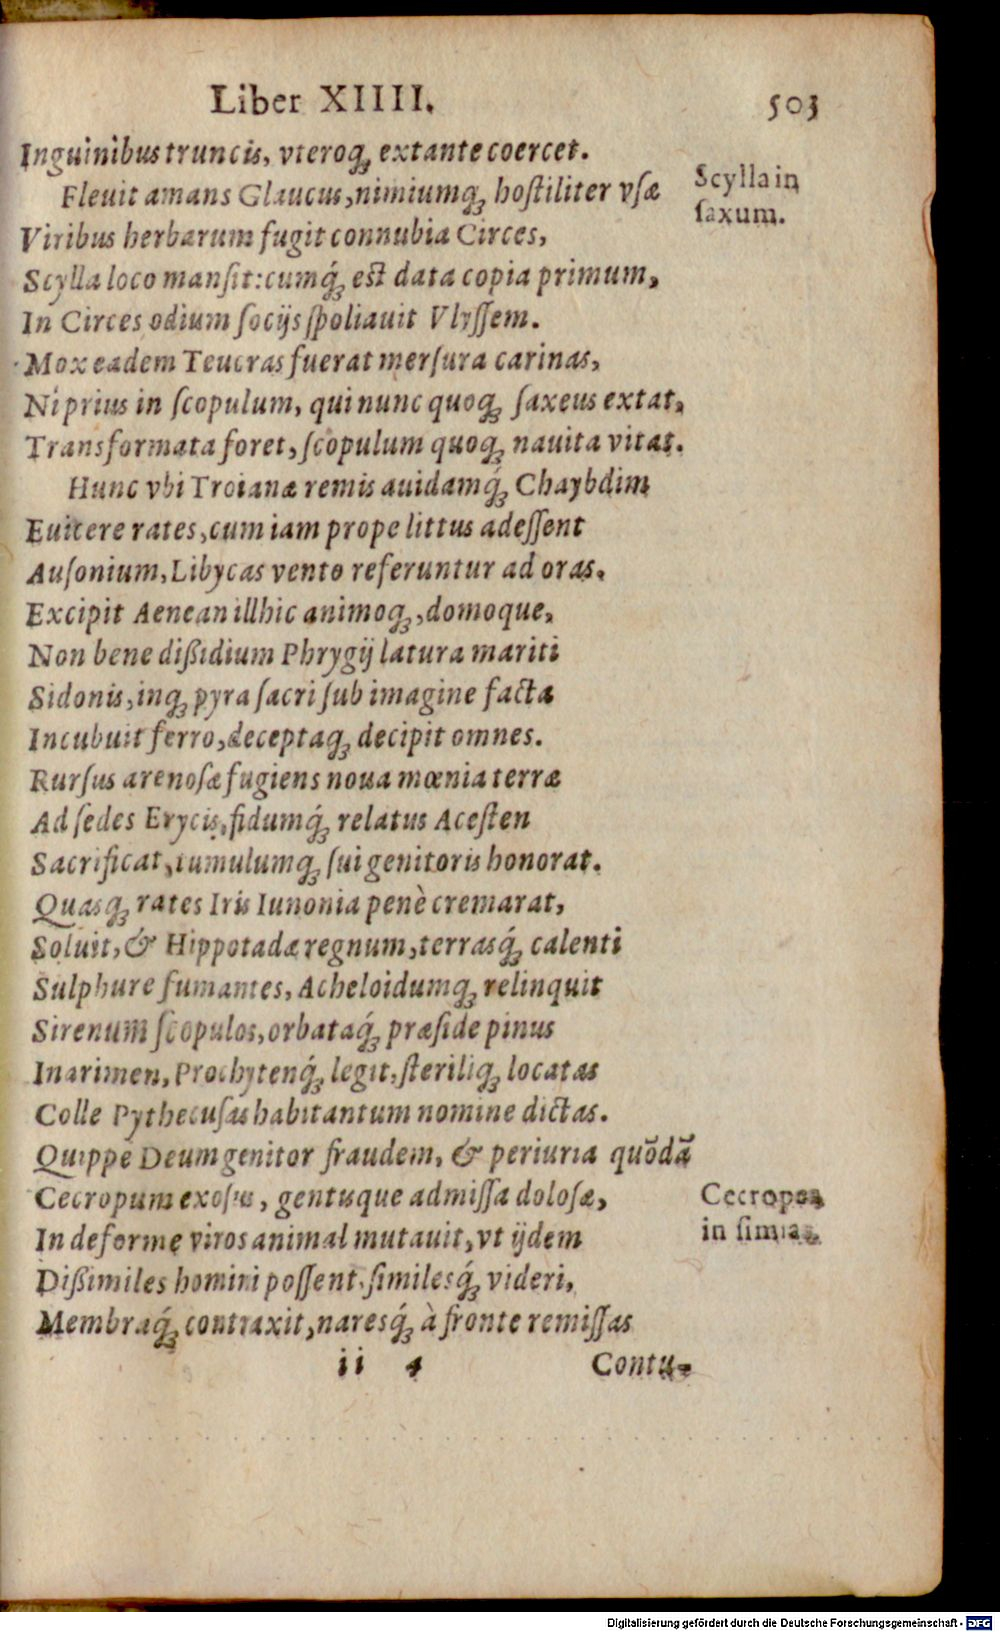 Liber XIIII. 503
Inguinibus truncis, vteroq́ꝫ extante coercet.
Fleuit amans Glaucus, nimiumqꝫ hoſtiliter vſæ
Viribus herbarum fugit connubia Circes,
Scylla loco manſit: cumq́ꝫ eſt data copia primum,
In Circes odium ſocijs ſpoliauit Vlyſſem.
Mox eadem Teucras fuerat merſura carinas,
Ni prius in ſcopulum, qui nunc quoqꝫ ſaxeus extat,
Transformata foret, ſcopulum quoqꝫ nauita vitat.
Scylla in
ſaxum.
Hunc vbi Troianæ remis auidamq́ꝫ Chaybdim
Euicere rates, cum iam prope littus adeſſent
Auſonium, Libycas vento referuntur ad oras.
Excipit Aenean illhic animoqꝫ, domoque,
Non bene dißidium Phrygij latura mariti
Sidonis, inqꝫ pyra ſacri ſub imagine facta
Incubuit ferro, deceptaqꝫ decipit omnes.
Rurſus arenoſæ fugiens noua mœnia terræ
Ad ſedes Erycis, fidumq́ꝫ relatus Aceſten
Sacrificat, tumulumqꝫ ſui genitoris honorat.
Quasqꝫ rates Iris Iunonia penè cremarat,
Soluit, & Hippotadæ regnum, terrasq́ꝫ calenti
Sulphure fumantes, Acheloidumqꝫ relinquit
Sirenum ſcopulos, orbataq́ꝫ præſide pinus
Inarimen, Prochytenq́ꝫ legit, ſteriliqꝫ locatas
Colle Pythecuſas habitantum nomine dictas.
Quippe Deum genitor fraudem, & periuria quōdā
Cecropum exoſus, gentisque admiſſa doloſæ,
In deforme viros animal mutauit, vt ijdem
Dißimiles homini poſſent, ſimilesq́ꝫ videri,
Membraq́ꝫ contraxit, naresq́ꝫ à fronte remiſſas
Cecropes
in ſimias.
ii 4 Contu-
Digitalisierung gefördert durch die Deutsche Forschungsgemeinschaft - DFG